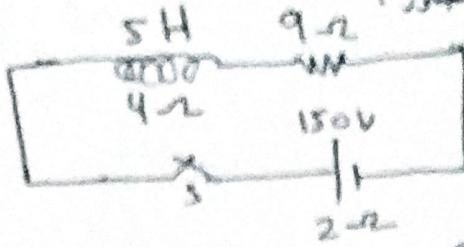 5H 9Ω
4Ω
150V
S
2Ω